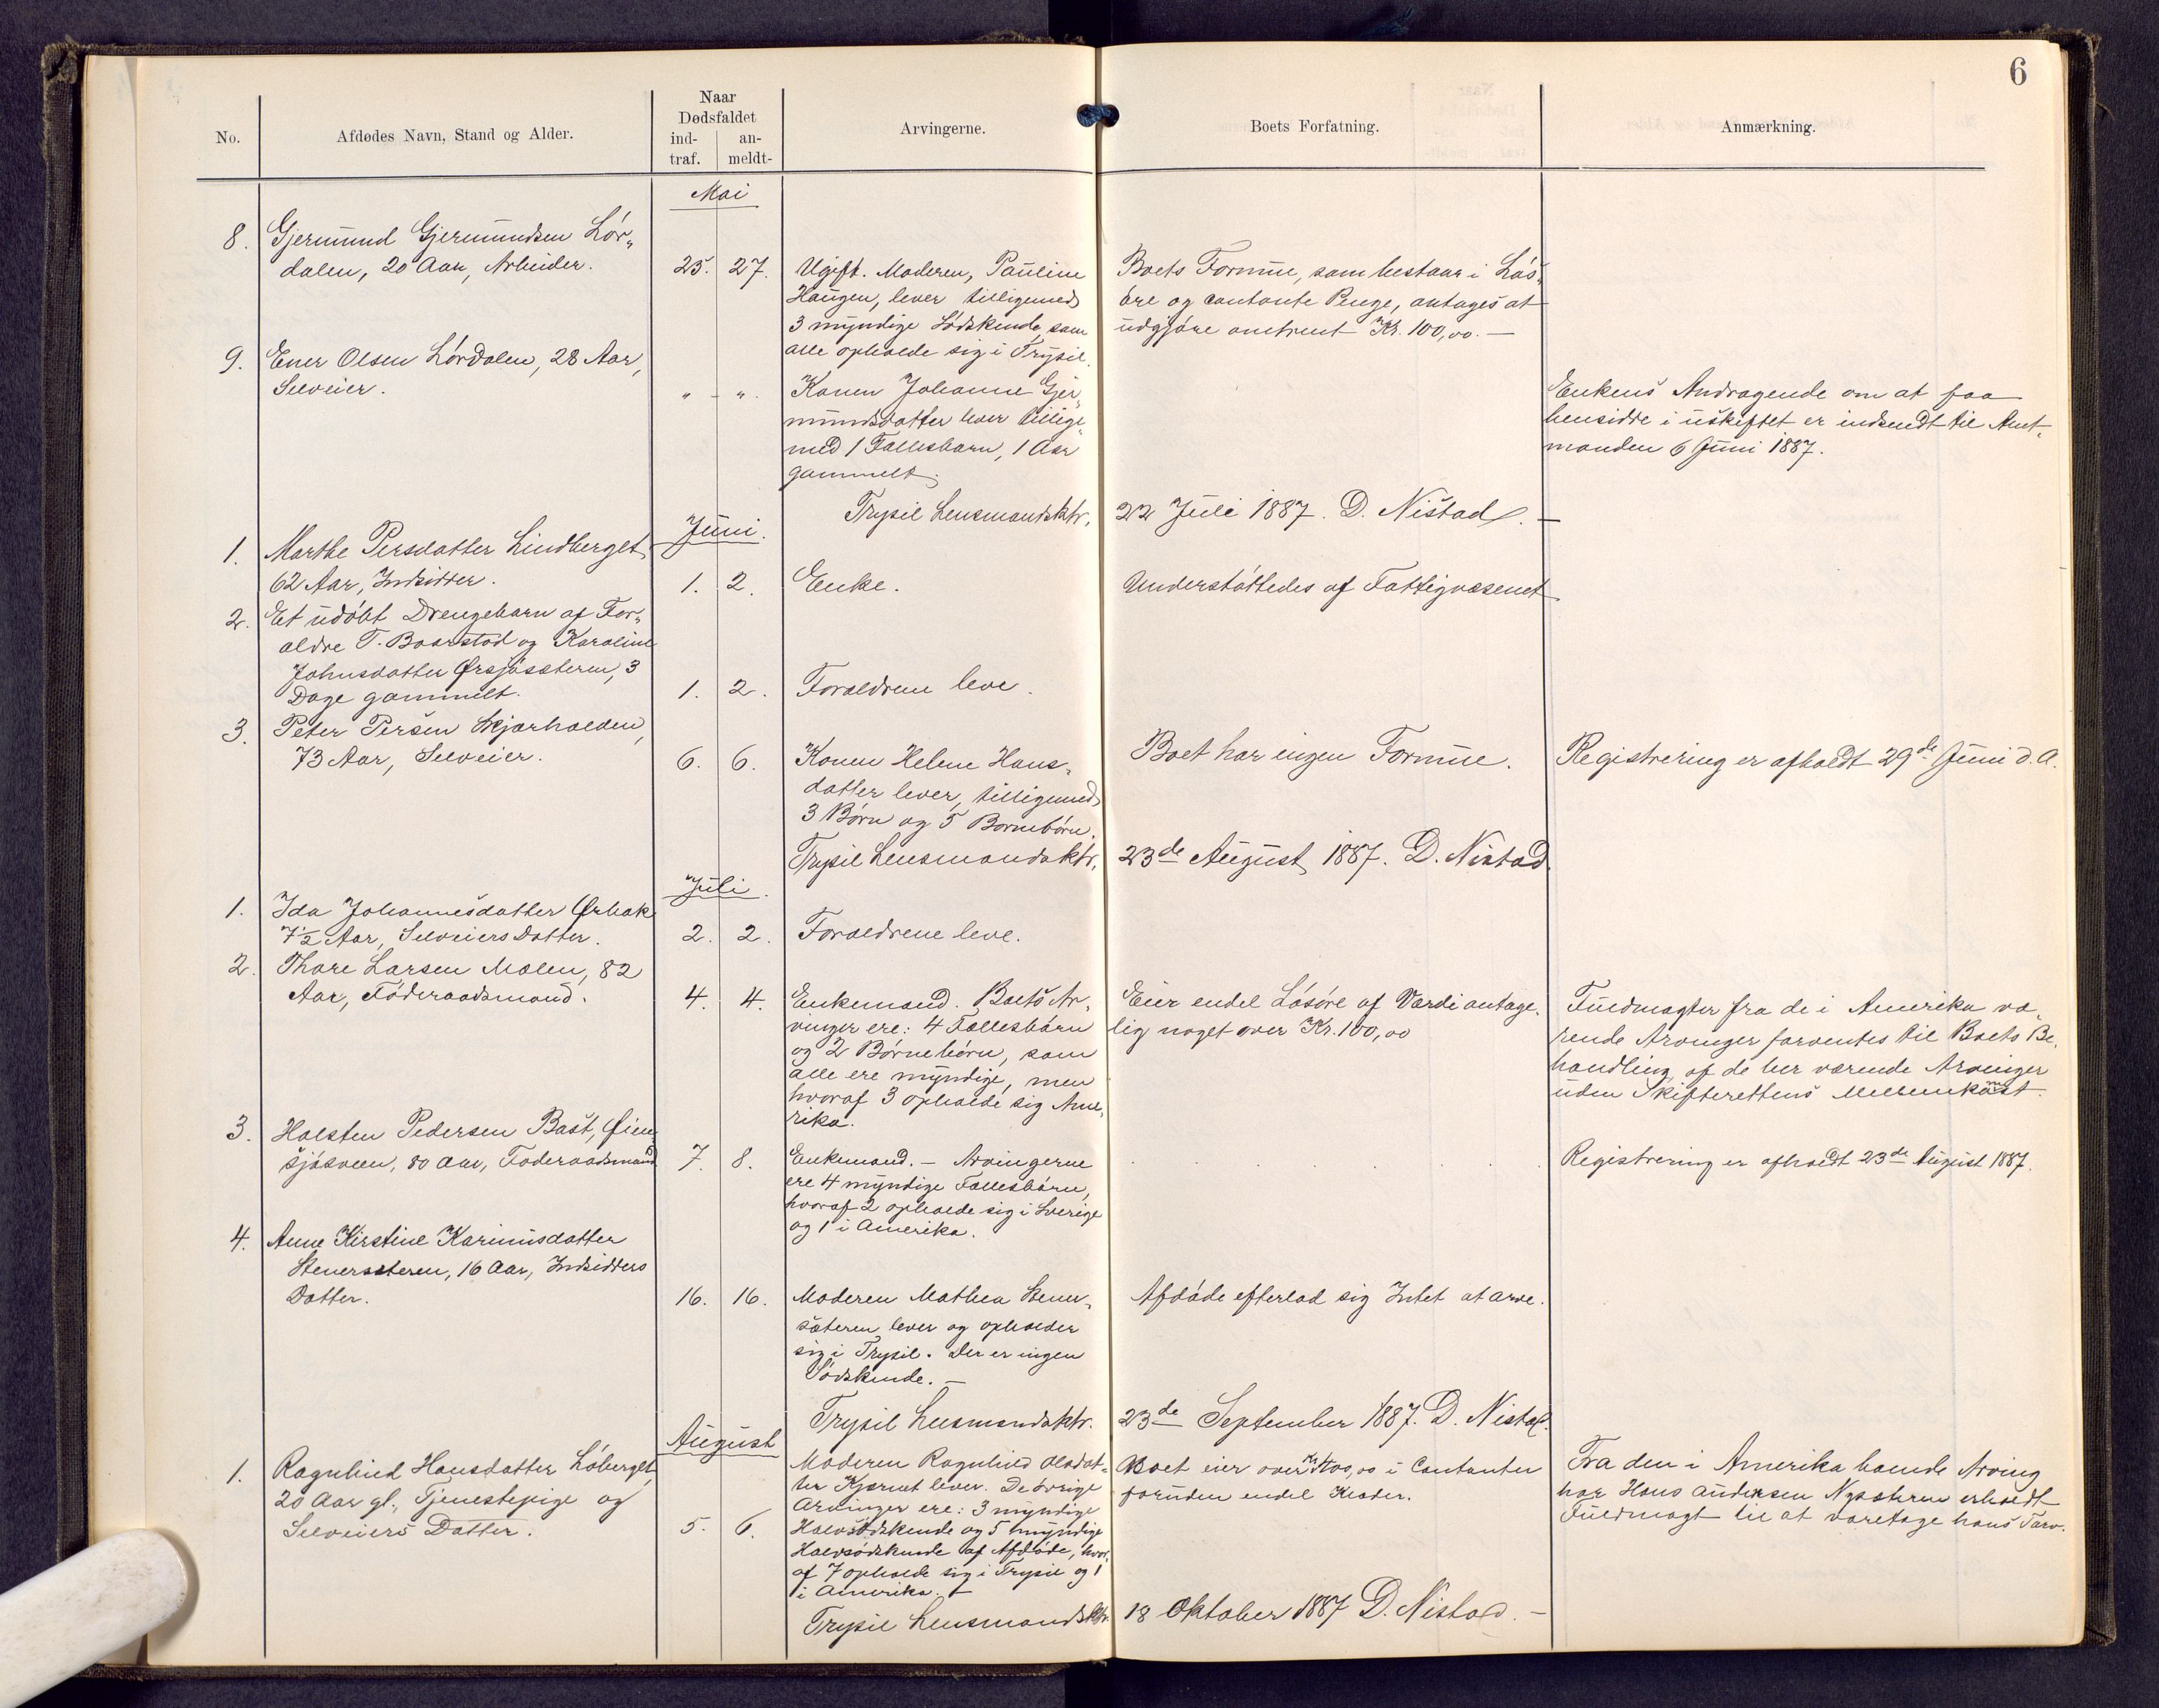 6
No.
Afdødes Navn, Stand og Alder.
Naar
Dødsfaldet
ind-
traf.
an-
meldt-
Arvingerne.
Boets Forfatning.
Anmærkning.
Mai
8.
Gjermund Gjermundsen Lør-
dalen, 20 Aar, Arbeider.
25. 27.
Ugift. Moderen, Pauline
Haugen, lever tilligemed
3 myndige Sødskende, som
alle opholde sig i Trysil.
Boets Formue, som bestaar i Løs-
øre og contante Penge, antages at
udgjøre omtrent Kr. 100,00. —
9.
Ener Olsen Lørdalen, 28 Aar,
Selveier.
" - "
Konen Johanne Gjer-
mundsdatter lever tillige-
med 1 Fællesbarn, 1 Aar
gammelt.
Enkens Andragende om at faa
hensidde i uskiftet er indsendt til Amt-
manden 6 Juni 1887.
Trysil Lensmandsktr. 22 Juli 1887. D. Nistad. —
Juni.
1.
Marthe Persdatter Lindberget
62 Aar, Indsidder.
1. 2.
Enke.
Understøttedes af Fattigvæsenet
2.
Et udøbt Drengebarn af For-
ældre T. Baarstad og Karoline
Johnsdatter Ørsjøsæteren, 3
Dage gammelt.
1. 2.
Forældrene leve.
3.
Peter Persen Skjærholden,
73 Aar, Selveier.
6. 6.
Konen Helene Hans-
datter lever, tilligemed
3 Børn og 5 Børnebørn.
Boet har ingen Formue.
Registrering er afholdt 29de Juni d. A.
Trysil Lensmandsktr. 23de August 1887. D. Nistad.
Juli.
1.
Ida Johannesdatter Ørbak
7½ Aar, Selveiers Datter.
2. 2.
Forældrene leve.
2.
Thore Larsen Molen, 82
Aar, Føderaadsmand.
4. 4.
Enkemand. Boets Ar-
vinger ere: 4 Fællesbørn
og 2 Børnebørn, som
alle ere myndige, men
hvoraf 3 opholde sig Ame-
rika.
Eier endel Løsøre af Værdi antage-
lig noget over Kr. 100,00
Fuldmagter fra de i Amerika væ-
rende Arvinger forventes til Boets Be-
handling af de her værende Arvinger
uden Skifterettens Mellemkomst.
3.
Halsten Pedersen Bast, Øien-
sjøsveen, 80 Aar, Føderaadsmand
7. 8.
Enkemand. — Arvingerne
ere 4 myndige Fællesbørn,
hvoraf 2 opholde sig i Sverige
og 1 i Amerika.
Registrering er afholdt 23de August 1887.
4.
Anne Kirstine Karinusdatter
Stenersæteren, 16 Aar, Indsidders
Datter.
16. 16.
Moderen Mathea Stener-
sæteren lever og opholder
sig i Trysil. Der er ingen
Sødskende. —
Afdøde efterlod sig Intet at arve.
Trysil Lensmandsktr. 23de September 1887. D. Nistad.
August
1.
Ragnhild Hansdatter Løberget
20 Aar gl., Tjenestepige og
Selveiers Datter.
5. 6.
Moderen Ragnhild Olsdat-
ter Kjærnet lever. De øvrige
Arvinger ere: 3 myndige
Halvsødskende og 5 myndige
Halvsødskende af Afdøde, hvor-
af 7 opholde sig i Trysil og 1
i Amerika. —
Boet eier over i Contanter
foruden endel Klæder.
Fra den i Amerika boende Arving
har Hans Andersen Nysæteren erholdt
Fuldmagt til at varetage hans Tarv.
Trysil Lensmandsktr. 18 Oktober 1887 D. Nistad. —